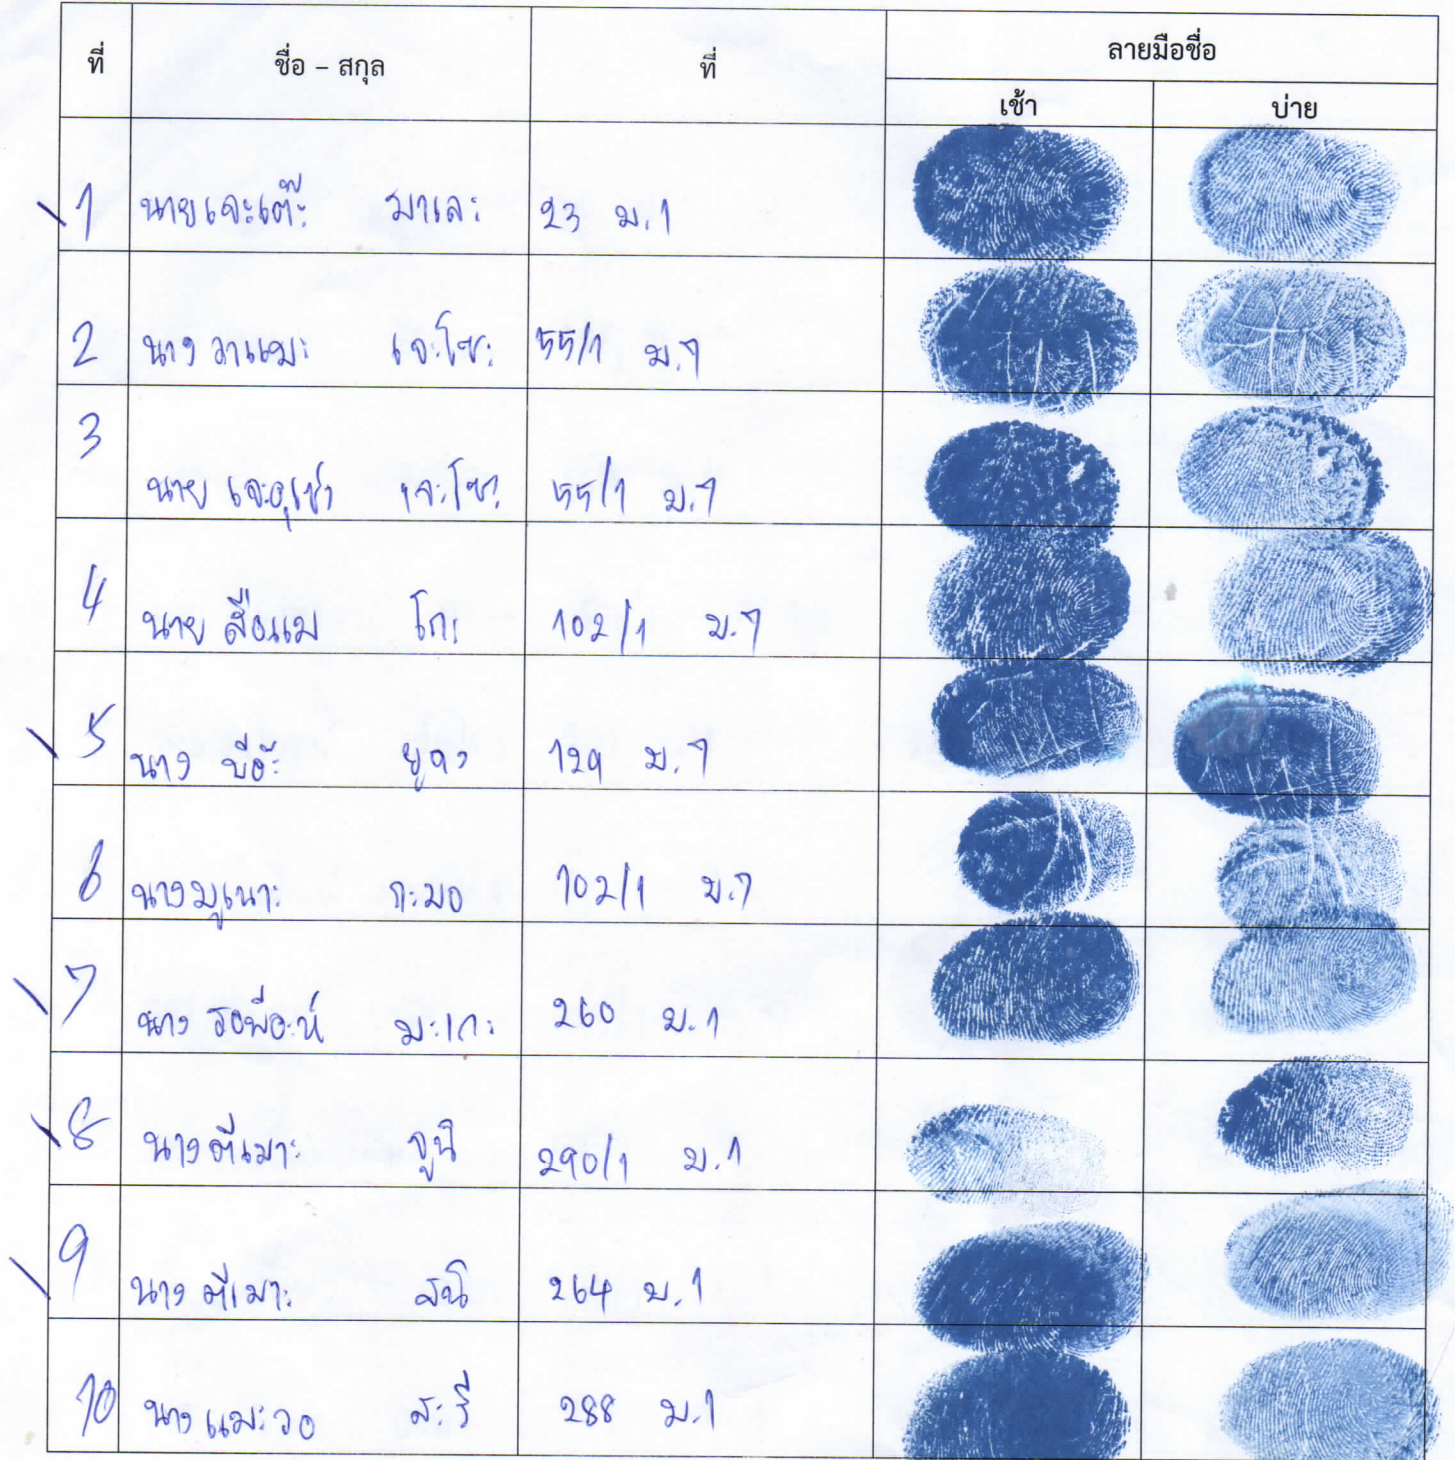 ที่ ชื่อ – สกุล ที่ ลายมือชื่อ
เช้า บ่าย
1 นายเจะเต๊ะ มาเละ 23 ม.1
2 นาง วาแมะ เจะโซะ 55/1 ม.1
3 นาย เจะอุเซ็ง เจะโซะ 55/1 ม.1
4 นาย สือแม โกะ 102/1 ม.1
5 นาง บีอ๊ะ 129 ม.1
6 นางมูเนาะ กะมอ 102/1 ม.1
7 นาง รอพีอะห์ มะเกะ 260 ม.1
8 นางตีเมาะ จูนิ 290/1 ม.1
9 นาง ตีเมาะ สนิ 264 ม.1
10 นาง แมะวอ สะรี 288 ม.1